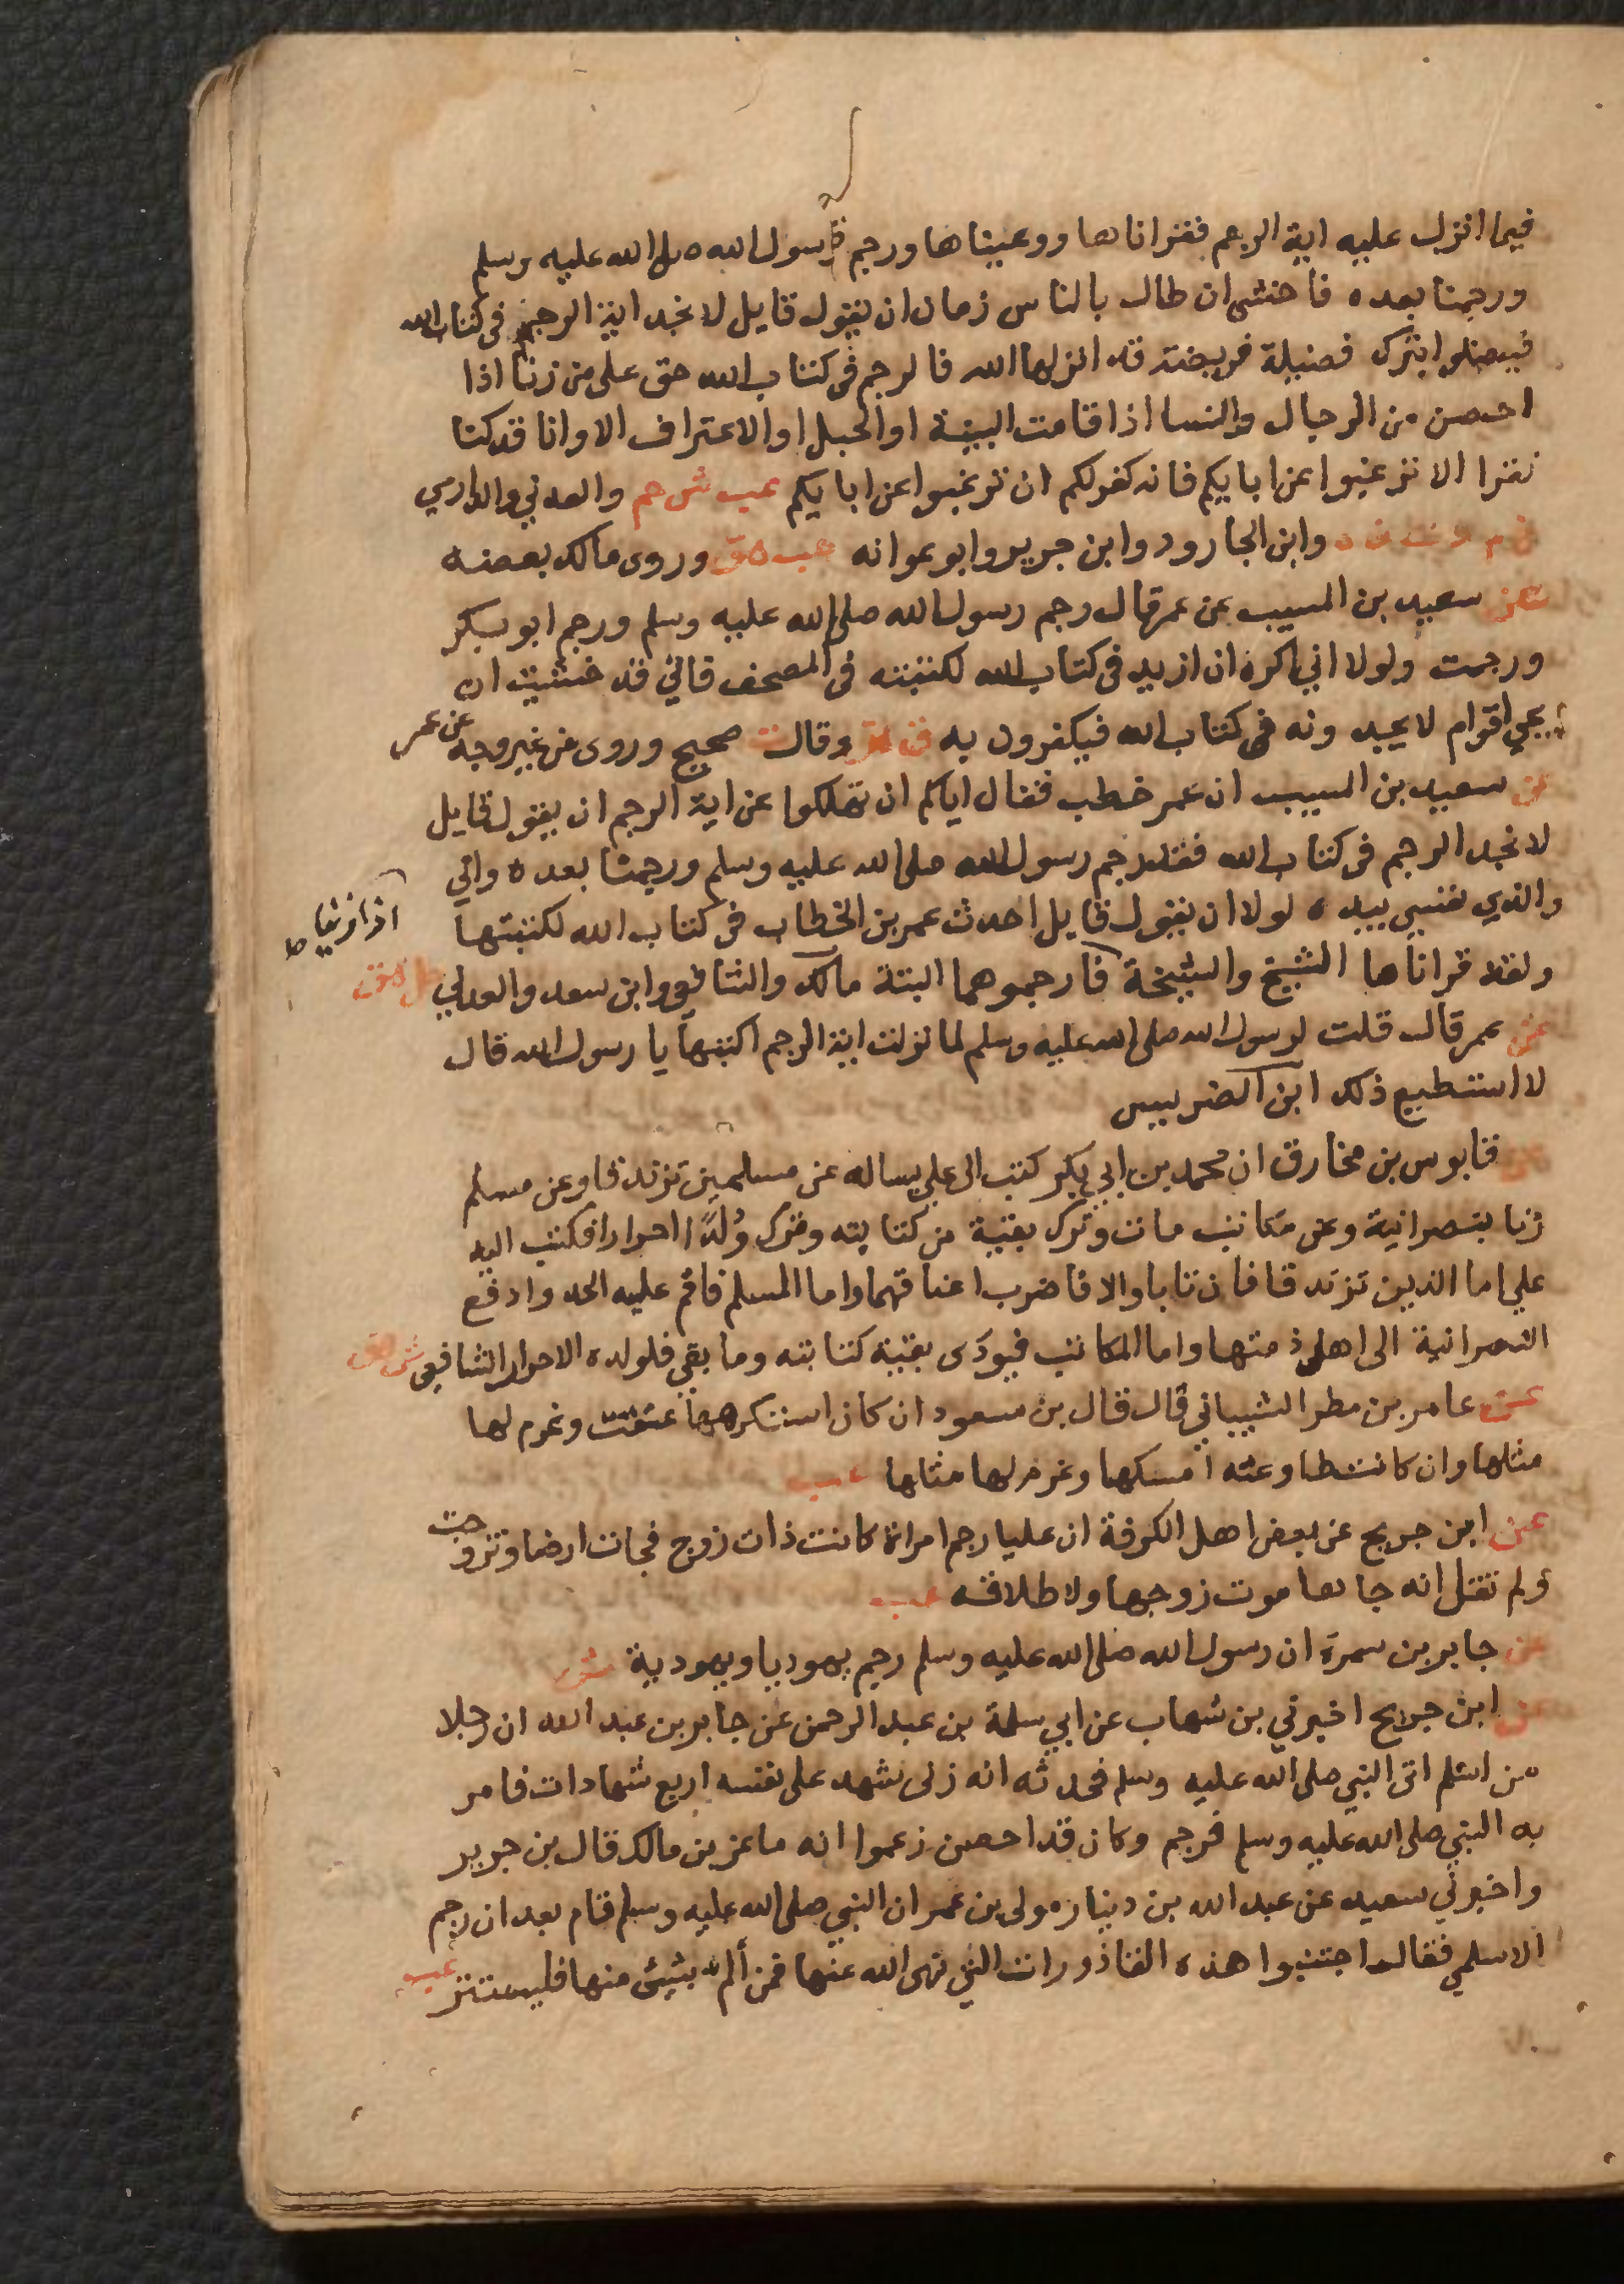 فيما انزل عليه اية الرجم فقراناها ووعيناها ورجم رسول الله صلى الله عليه وسلم
ورجمنا بعده فاخشى ان طال بالناس زمان ان يقول قايل لا نجد اية الرجم فى كتاب الله
فيضلوا بترك فضيلة فريضة قد انزلها الله فالرجم فى كتاب الله حق على من زنا اذا
احصن من الرجال والنسا اذا قامت البينة او الحبل او الاعتراف الا وانا قد كنا
نقرا الا ترغبوا عن ابايكم فانه كفر لكم ان ترغبوا عن ابايكم عب ش حم والعدني والدارمي
خ م د ت ن ه وابن الجارود وابن جرير وابو عوانه حب هق وروى مالك بعضه
عن سعيد بن المسيب عن عمر قال رجم رسول الله صلى الله عليه وسلم ورجم ابو بكر
ورجمت ولولا اني اكره ان ازيد فى كتاب الله لكتبته فى المصحف فاني قد خشيت ان
يجي اقوام لا يجدونه فى كتاب الله فيكفرون به ق وقال ت صحيح وروى من غير وجه عن عمر
عن سعيد بن المسيب ان عمر خطب فقال اياكم ان تهلكوا عن اية الرجم ان يقول قايل
لا نجد الرجم فى كتاب الله فقد رجم رسول الله صلى الله عليه وسلم ورجمنا بعده واني
والذي نفسي بيده لولا ان يقول قايل احدث عمر بن الخطاب فى كتاب الله لكتبتها
اذا زنيا ط
ولقد قراناها الشيخ والشيخة فارجموهما البتة مالك والشافعي وابن سعد والعدني حل هق
عن عمر قال قلت لرسول الله صلى الله عليه وسلم لما نزلت اية الرجم اكتبها يا رسول الله قال
لا استطيع ذلك ابن الضريس
عن قابوس بن مخارق ان محمد بن ابي بكر كتب الى علي يساله عن مسلمين تزندقا وعن مسلم
زنا بنصرانية وعن مكاتب مات وترك بقية من كتابته وترك وُلْدًا احرارا فكتب اليه
علي اما الذين تزندقا فان تابا والا فاضرب اعناقهما واما المسلم فاقم عليه الحد وادفع
النصرانية الى اهل ذمتها واما المكاتب فيودى بقية كتابته وما بقي فلولده الاحرار الشافعي ش هق
عن عامر بن مطر الشيباني قال قال بن مسعود ان كان استكرهها عتقت وغرم لها
مثلها وان كانت طاوعته امسكها وغرم لها مثلها عب
عن ابن جريج عن بعض اهل الكوفة ان عليا رجم امراة كانت ذات زوج فجات ارضا وتزوجت
ولم تقل انه جاها موت زوجها ولا طلاقه عب
عن جابر بن سمرة ان رسول الله صلى الله عليه وسلم رجم يهوديا ويهودية ش
عن ابن جريج اخبرني بن شهاب عن ابي سلمة بن عبد الرحمن عن جابر بن عبد الله ان رجلا
من اسلم اتى النبي صلى الله عليه وسلم فحدثه انه زنى شهد على نفسه اربع شهادات فامر
به النبي صلى الله عليه وسلم فرجم وكان قد احصن زعموا انه ماعز بن مالك قال بن جرير
واخبرني سعيد عن عبد الله بن دينار مولى بن عمر ان النبي صلى الله عليه وسلم قام بعد ان رجم
الاسلمي فقال اجتنبوا هذه القاذورات التي نهى الله عنها فمن ألم بشيئ منها فليستتر عب